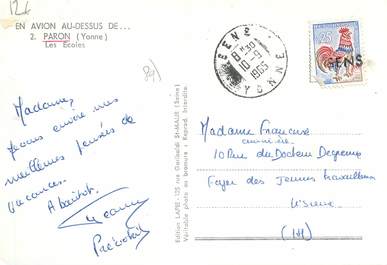 124
EN AVION AU-DESSUS DE...
2. PARON (Yonne)
Les Ecoles
Madame,
vous envoie mes
meilleures pensées de
vacances.
A bientôt.
Jeanne
Edition LAPIE - 125 rue Garibaldi St-MAUR (Seine)
Véritable photo au bromure : Reprod. Interdite.
SENS
8H30
10-9
1965
YONNE
25
SENS
Madame Françoise
10 Rue du Docteur Degrenne
Foyer des Jeunes travailleurs
Lisieux
(14)